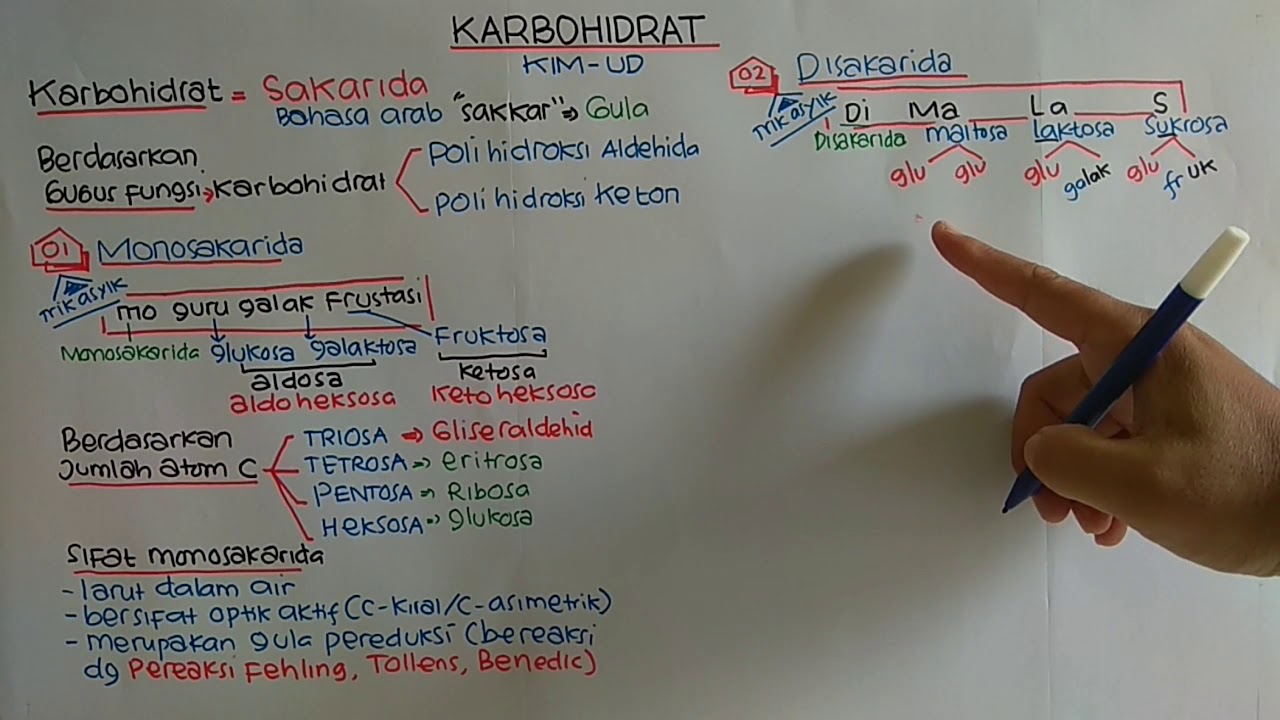 KARBOHIDRAT
KIM-UD
Karbohidrat = Sakarida
Bahasa arab "sakkar" => Gula
Berdasarkan
Gugus fungsi → karbohidrat
Poli hidroksi Aldehida
Poli hidroksi keton
01 Monosakarida
Trik asyik
mo guru galak Frustasi
Monosakarida glukosa galaktosa Fruktosa
aldosa ketosa
aldoheksosa Keto heksosa
Berdasarkan
Jumlah atom C
TRIOSA => Gliseraldehid
TETROSA => eritrosa
PENTOSA => Ribosa
HEKSOSA => glukosa
Sifat monosakarida
- larut dalam air
- bersifat optik aktif (C-Kiral/C-asimetrik)
- merupakan gula pereduksi (bereaksi
dg Pereaksi Fehling, Tollens, Benedic)
02 Disakarida
Trik asyik
Di Ma La S
Disakarida maltosa laktosa sukrosa
glu glu glu galak glu fruk